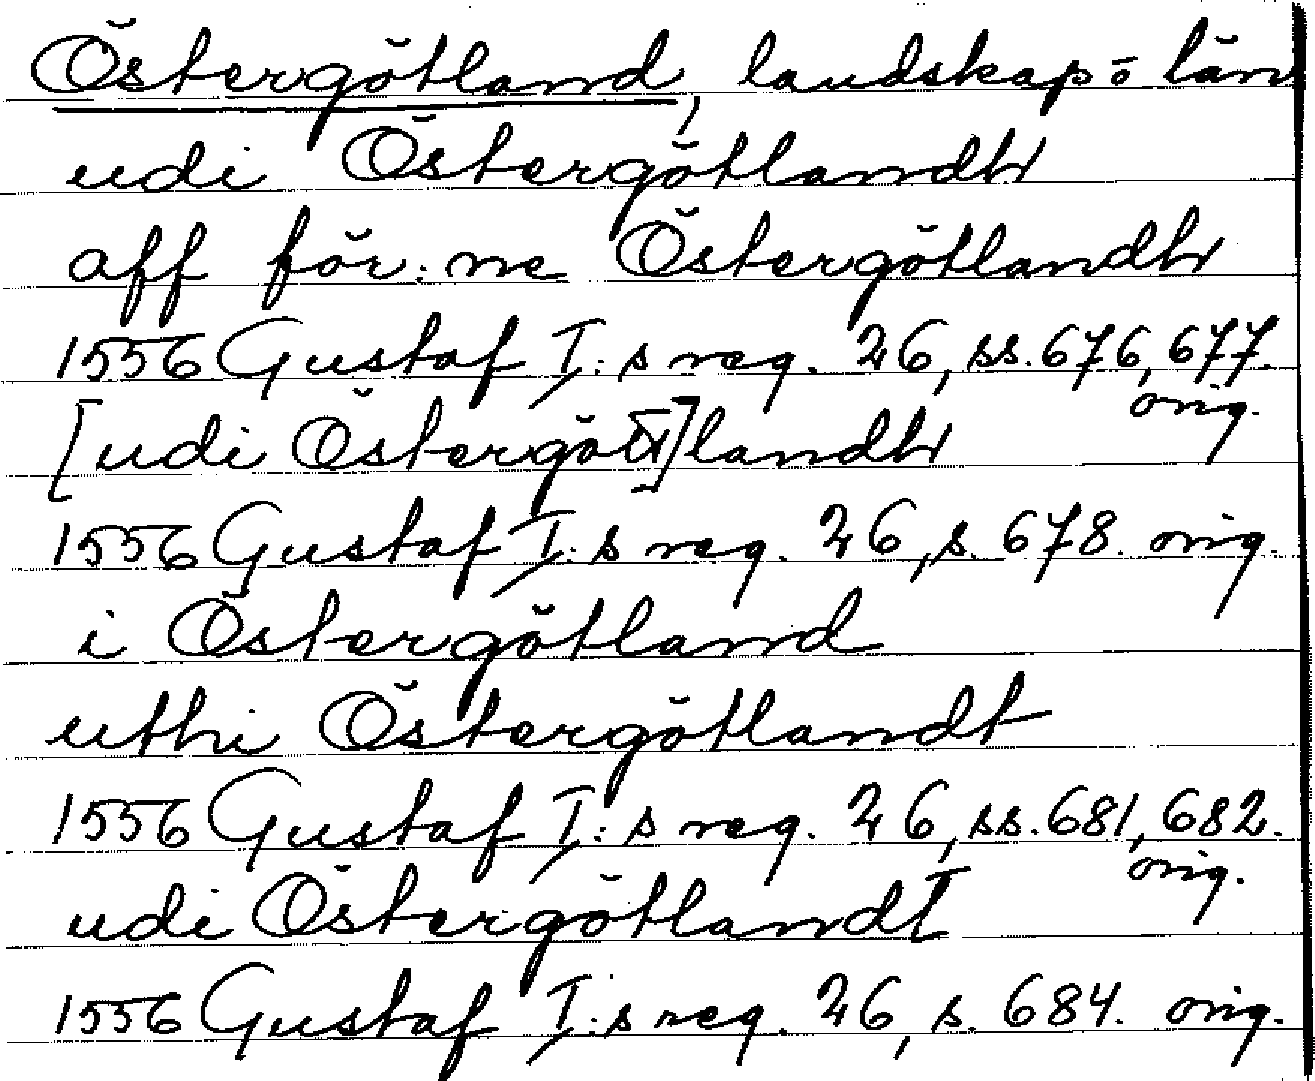 Östergötland, landskap o län
udi Östergötlandh
aff för:ne Östergötlandh
1556 Gustaf I:s reg. 26, ss. 676, 677.
orig.
[udi Östergött]landh
1556 Gustaf I:s reg. 26, s. 678. orig.
i Östergötland
uthi Östergötlandt
1556 Gustaf I:s reg. 26, ss. 681, 682.
orig.
udi Östergötlandt
1556 Gustaf I:s reg. 26, s. 684. orig.